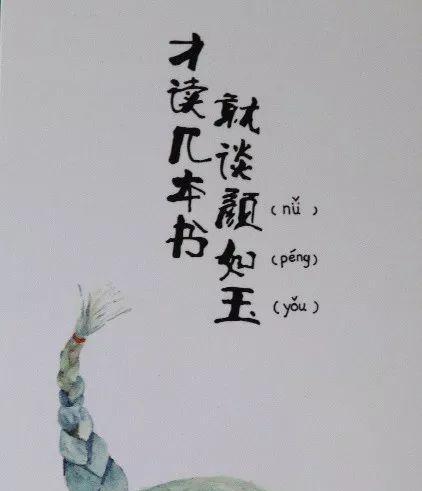 才读几本书
就谈顏如玉
(nǚ)
(péng)
(yǒu)